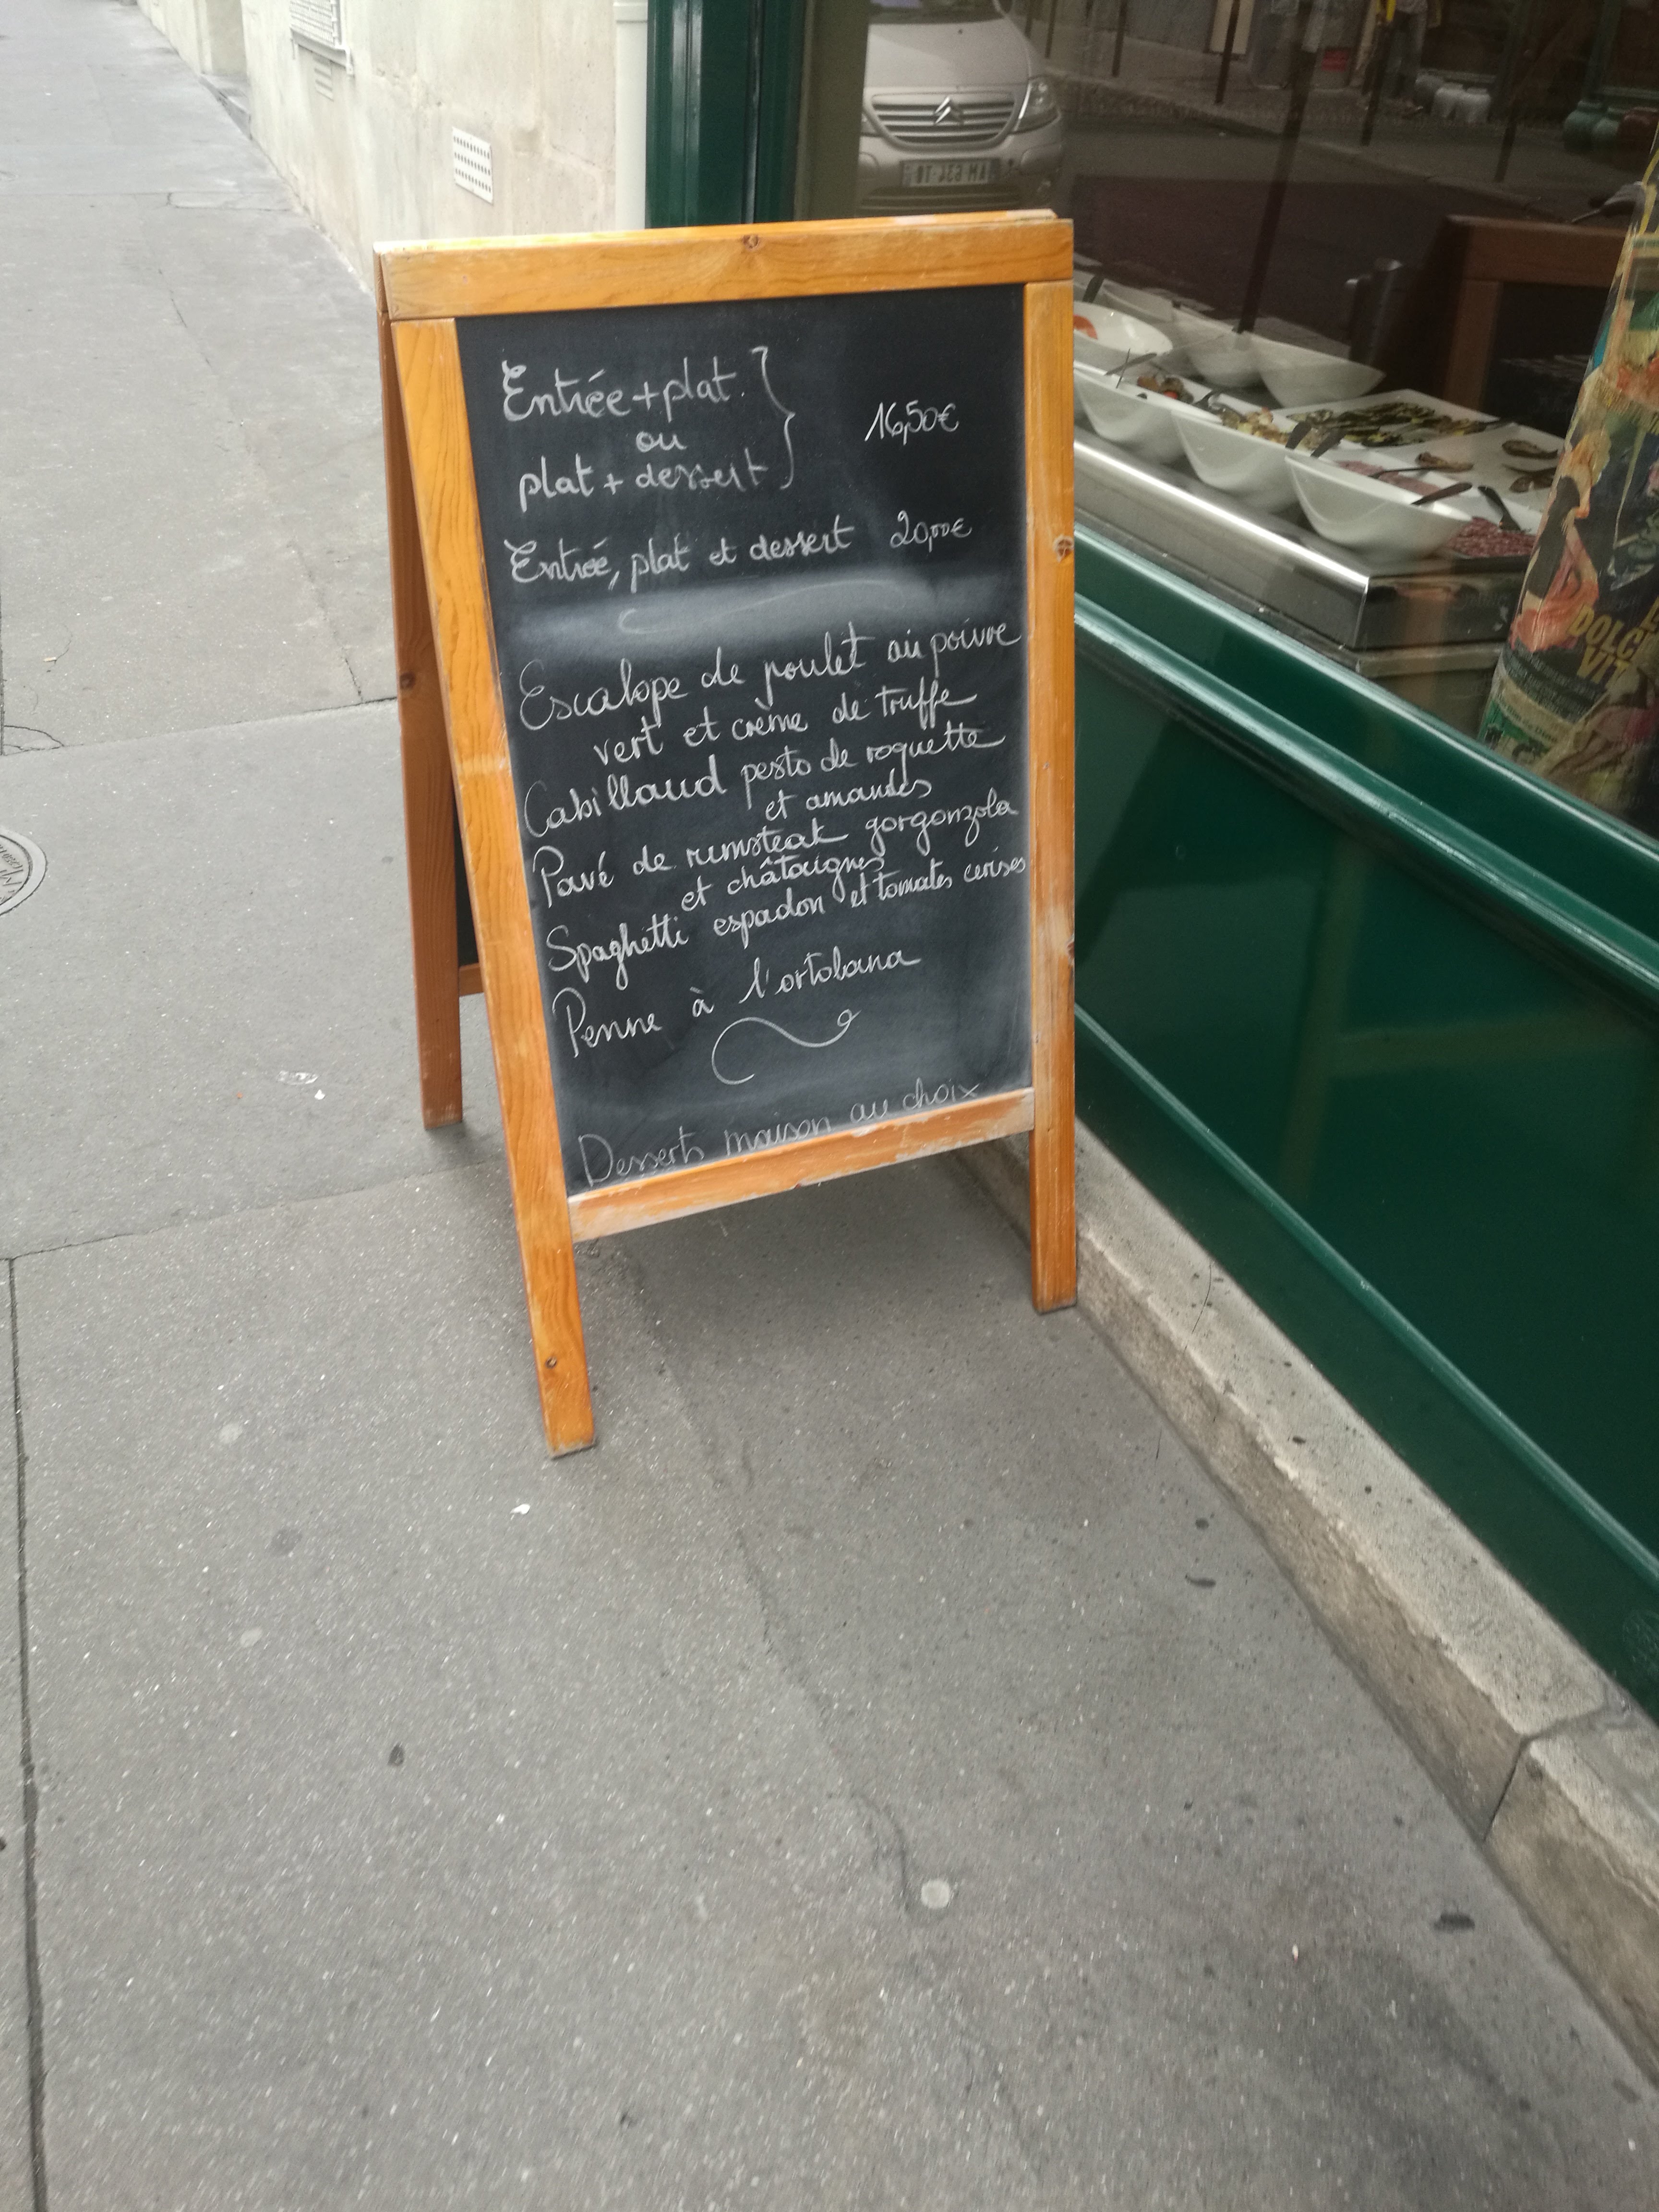 Entrée + plat
ou
plat + dessert
16,50€
Entrée, plat et dessert 20,00€
Escalope de poulet au poivre
vert et crème de truffe
Cabillaud pesto de roquette
et amandes
Pavé de rumsteak gorgonzola
et châtaignes
Spaghetti espadon et tomates cerises
Penne à l'ortolana
Desserts maison au choix
DOLCE
VIT